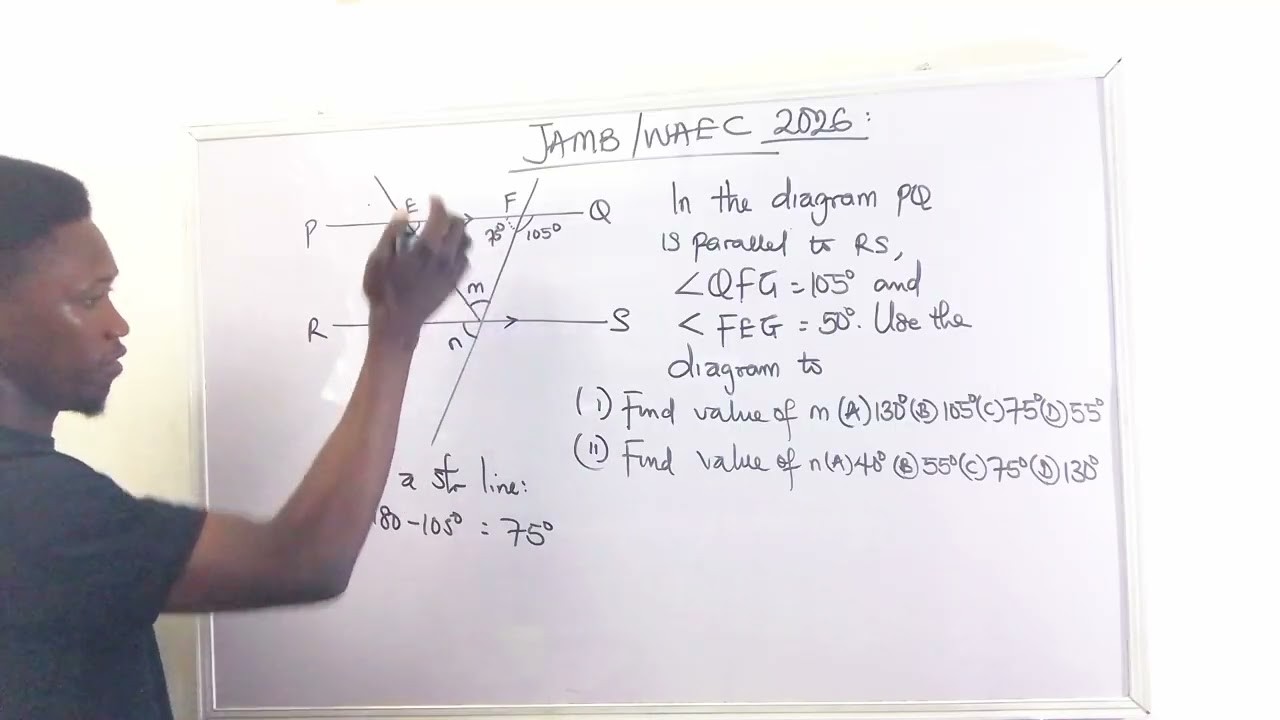 JAMB/WAEC 2026:
In the diagram PQ
is parallel to RS,
∠QFG = 105° and
∠FEG = 50°. Use the
diagram to
(i) Find value of m (A) 130° (B) 105° (C) 75° (D) 55°
(ii) Find value of n (A) 40° (B) 55° (C) 75° (D) 130°
E F
P Q
75° 105°
m
R S
n
a str line:
180 - 105° = 75°